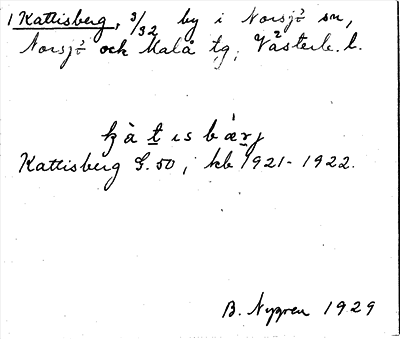 1 Kattisberg, 3/32 by i Norsjö sn,
Norsjö och Malå tg, Västerb. l.
kàtisbærj
Kattisberg G. 50, kb 1921-1922.
B. Nygren 1929